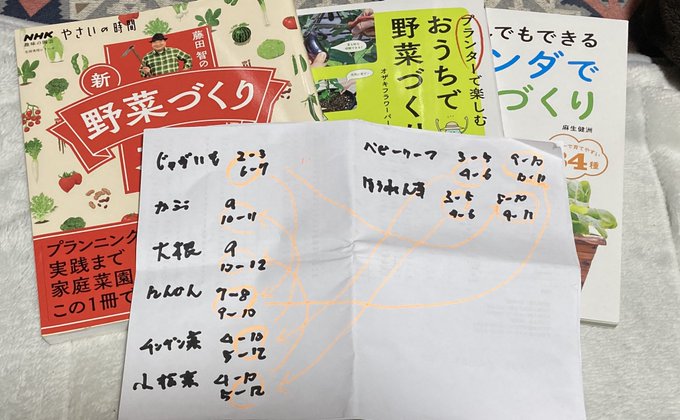 NHK
趣味の園芸
やさいの時間
藤田 智の
新 野菜づくり
プランニング
実践まで
家庭菜園
この1冊で
プランターで楽しむ
おうちで
野菜づく
オザキフラワーパー
でもできる
ンダで
づくり
麻生健洲
で育てやすい
34種
じゃがいも 2-3
6-7
カブ 9
10-11
大根 9
10-12
にんじん 7-8
9-10
チンゲン菜 4-10
5-12
小松菜 4-10
5-12
ベビーリーフ 3-4 9-10
4-6 10-11
ほうれん草 3-5 8-10
4-6 9-11